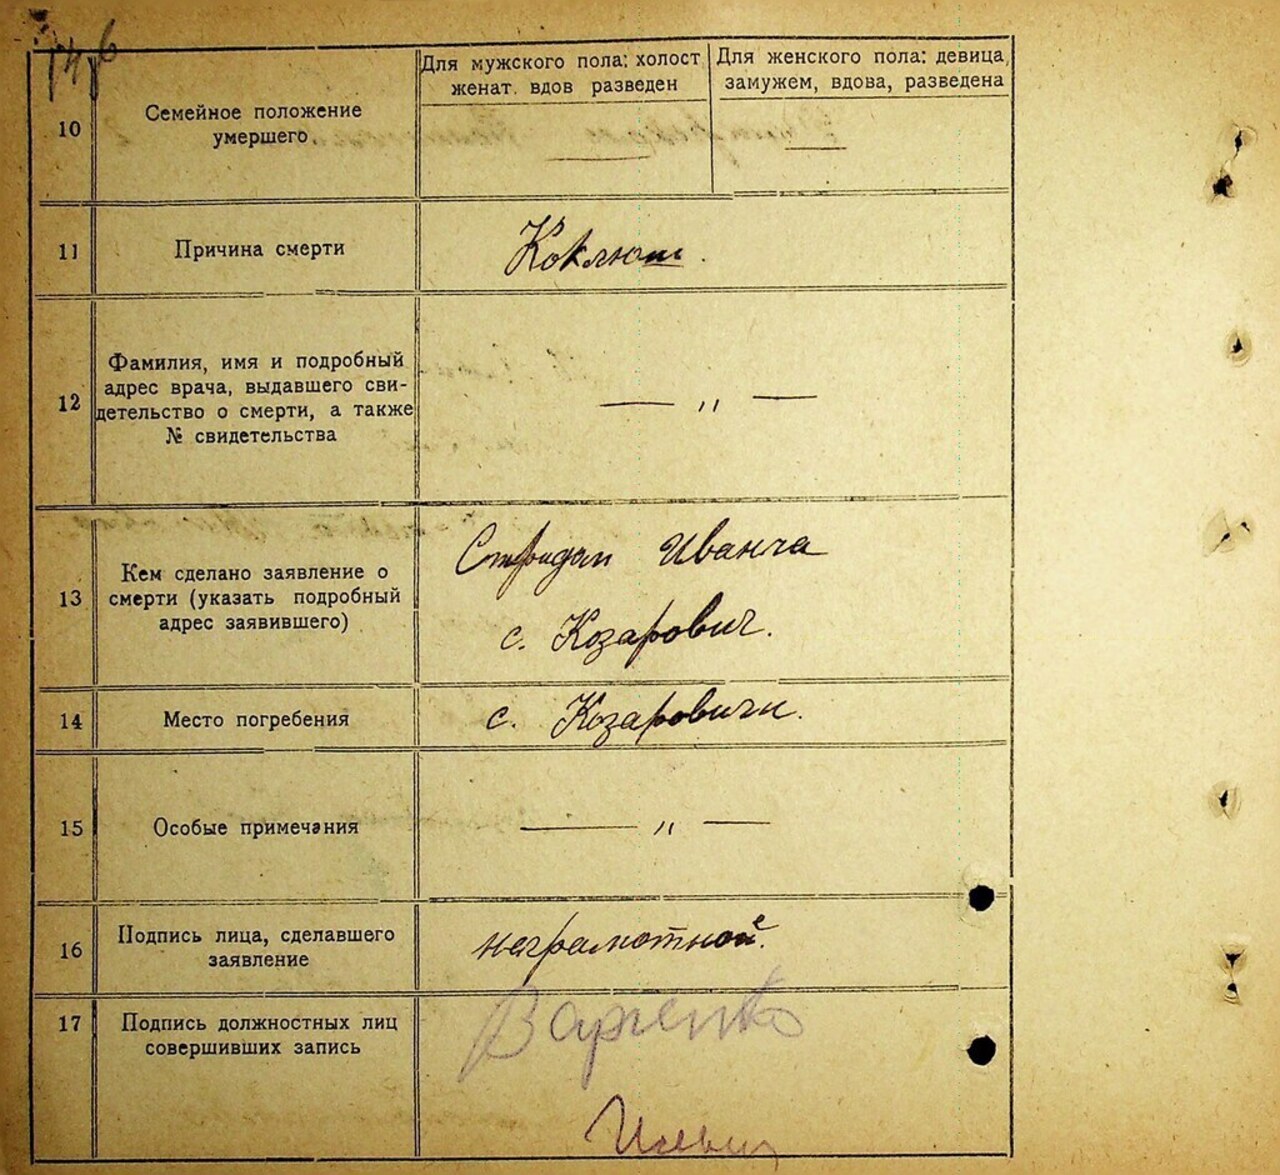 Для мужского пола: холост
женат. вдов разведен
Для женского пола: девица,
замужем, вдова, разведена
10
Семейное положение
умершего.
11
Причина смерти
Коклюш.
12
Фамилия, имя и подробный
адрес врача, выдавшего сви-
детельство о смерти, а также
№ свидетельства
— " —
13
Кем сделано заявление о
смерти (указать подробный
адрес заявившего)
Иванча
с. Козарович.
14
Место погребения
с. Козаровичи.
15
Особые примечания
— " —
16
Подпись лица, сделавшего
заявление
17
Подпись должностных лиц
совершивших запись